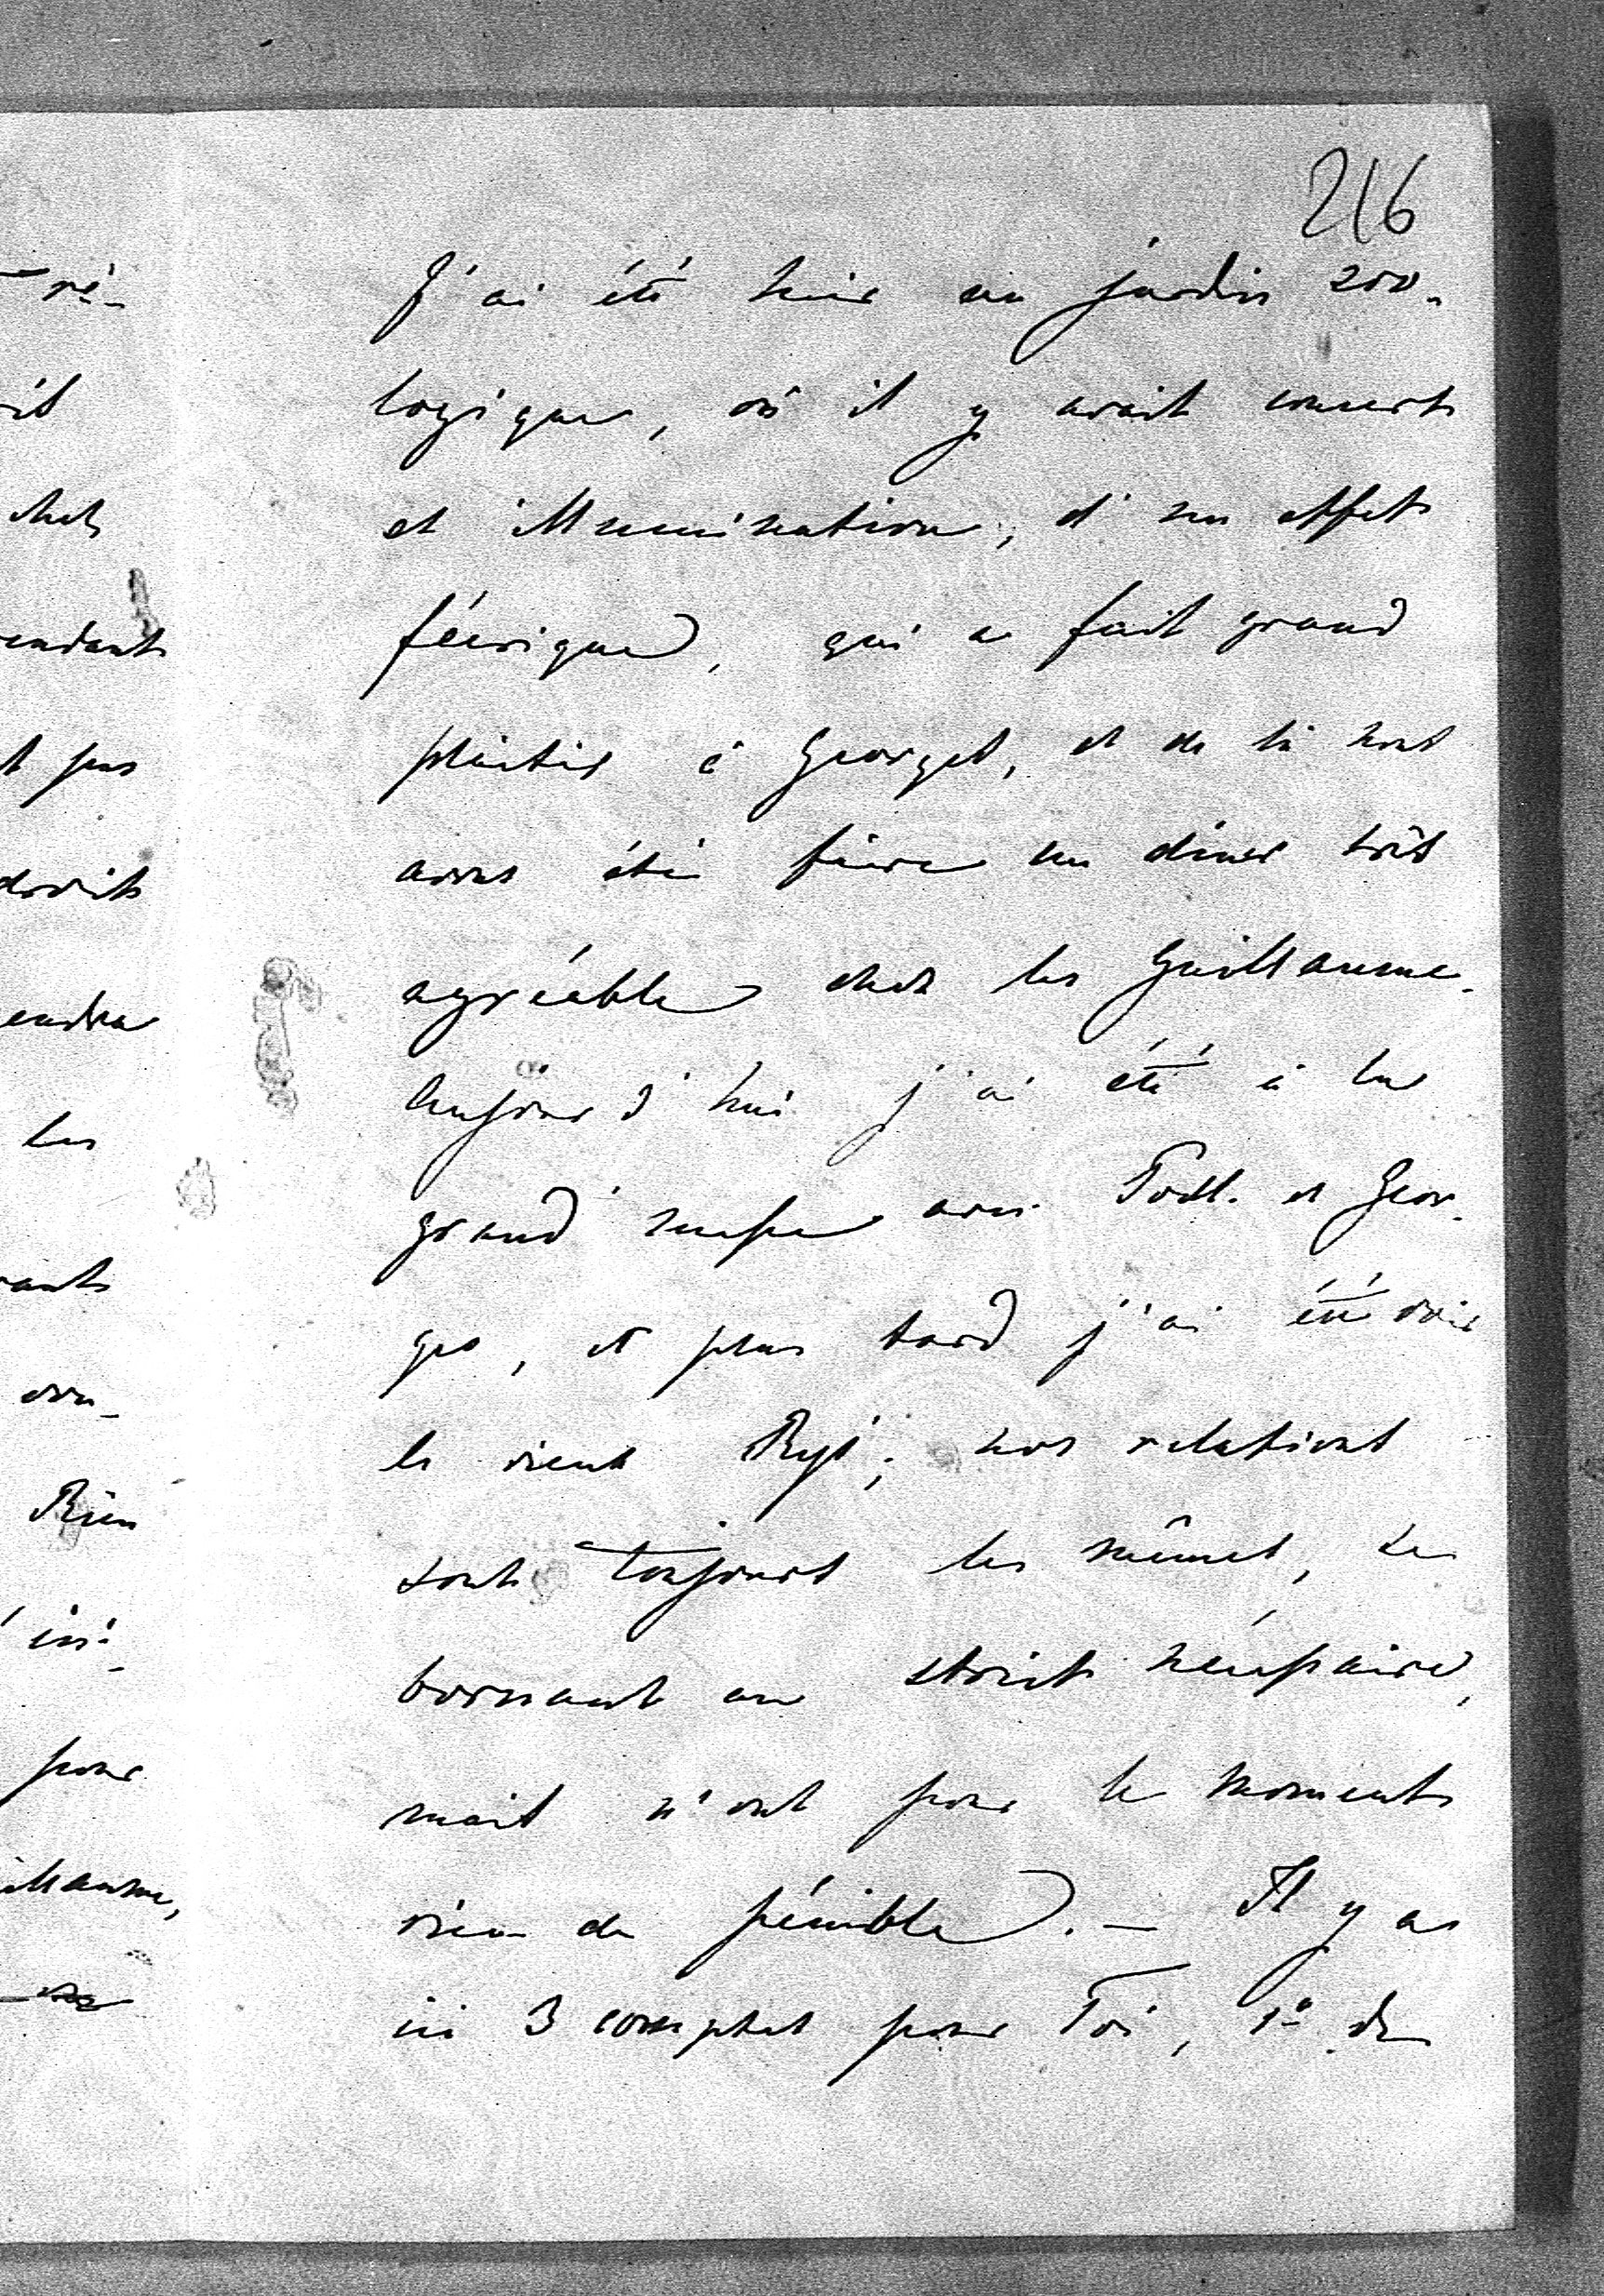 216
J'ai été hier au jardin zoo-
logique, où il y avait concert
et illumination, d'un effet
féerique, qui a fait grand
plaisir à Georges, et de là nous
avons été faire un dîner très
agréable chez les Guillaume.
Aujourd'hui j'ai été à la
grand' messe avec et Geor-
ges, et plus tard j'ai été voir
le vieux ; nos relations
sont toujours les mêmes, se
bornant au strict nécessaire,
mais n'ont pour le moment
rien de pénible. — Il y a
ici 3 comptes pour Toi, 1° de
ré-
it
chez
endant
t pas
droit
endra
les
vant
Rien
pour
illaume,